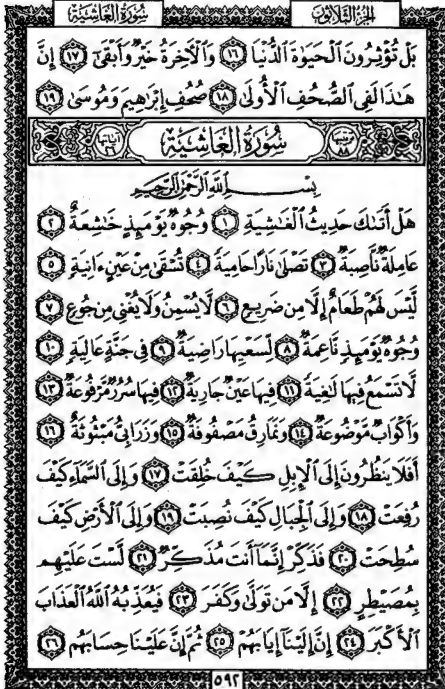 سُورَةُ الغَاشِيَةِ الجُزْءُ الثَّلَاثُونَ
بَلْ تُؤْثِرُونَ ٱلْحَيَوٰةَ ٱلدُّنْيَا ١٦ وَٱلْـَٔاخِرَةُ خَيْرٌ وَأَبْقَىٰٓ ١٧ إِنَّ
هَـٰذَا لَفِى ٱلصُّحُفِ ٱلْأُولَىٰ ١٨ صُحُفِ إِبْرَٰهِيمَ وَمُوسَىٰ ١٩
سُورَةُ الغَاشِيَةِ
بِسْمِ ٱللَّهِ ٱلرَّحْمَـٰنِ ٱلرَّحِيمِ
هَلْ أَتَىٰكَ حَدِيثُ ٱلْغَـٰشِيَةِ ١ وُجُوهٌ يَوْمَئِذٍ خَـٰشِعَةٌ ٢
عَامِلَةٌ نَّاصِبَةٌ ٣ تَصْلَىٰ نَارًا حَامِيَةً ٤ تُسْقَىٰ مِنْ عَيْنٍ ءَانِيَةٍ ٥
لَّيْسَ لَهُمْ طَعَامٌ إِلَّا مِن ضَرِيعٍ ٦ لَّا يُسْمِنُ وَلَا يُغْنِى مِن جُوعٍ ٧
وُجُوهٌ يَوْمَئِذٍ نَّاعِمَةٌ ٨ لِّسَعْيِهَا رَاضِيَةٌ ٩ فِى جَنَّةٍ عَالِيَةٍ ١٠
لَّا تَسْمَعُ فِيهَا لَـٰغِيَةً ١١ فِيهَا عَيْنٌ جَارِيَةٌ ١٢ فِيهَا سُرُرٌ مَّرْفُوعَةٌ ١٣
وَأَكْوَابٌ مَّوْضُوعَةٌ ١٤ وَنَمَارِقُ مَصْفُوفَةٌ ١٥ وَزَرَابِىُّ مَبْثُوثَةٌ ١٦
أَفَلَا يَنظُرُونَ إِلَى ٱلْإِبِلِ كَيْفَ خُلِقَتْ ١٧ وَإِلَى ٱلسَّمَآءِ كَيْفَ
رُفِعَتْ ١٨ وَإِلَى ٱلْجِبَالِ كَيْفَ نُصِبَتْ ١٩ وَإِلَى ٱلْأَرْضِ كَيْفَ
سُطِحَتْ ٢٠ فَذَكِّرْ إِنَّمَآ أَنتَ مُذَكِّرٌ ٢١ لَّسْتَ عَلَيْهِم
بِمُصَيْطِرٍ ٢٢ إِلَّا مَن تَوَلَّىٰ وَكَفَرَ ٢٣ فَيُعَذِّبُهُ ٱللَّهُ ٱلْعَذَابَ
ٱلْأَكْبَرَ ٢٤ إِنَّ إِلَيْنَآ إِيَابَهُمْ ٢٥ ثُمَّ إِنَّ عَلَيْنَا حِسَابَهُم ٢٦
٥٩٢